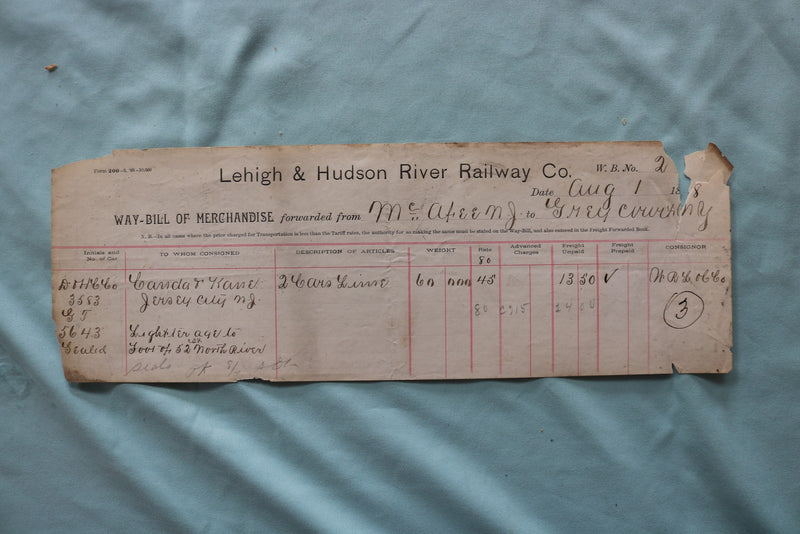 Form 200—5, '88—30,000
Lehigh & Hudson River Railway Co. W. B. No. 2
Date Aug 1 18 8
WAY-BILL OF MERCHANDISE forwarded from McAfee NJ. to Grey Court NY
N. B.—In all cases where the price charged for Transportation is less than the Tariff rates, the authority for so making the same must be stated on the Way-Bill, and also entered in the Freight Forwarded Book.
Initials and No. of Car TO WHOM CONSIGNED DESCRIPTION OF ARTICLES WEIGHT Rate Advanced Charges Freight Unpaid Freight Prepaid CONSIGNOR
80
Canda & Kane 2 Cars Lime 60 000 45 13 50 ✓
3583 Jersey City NJ.
G T 80 3
5643 Lighterage to
Sealed Foot of 52 North River